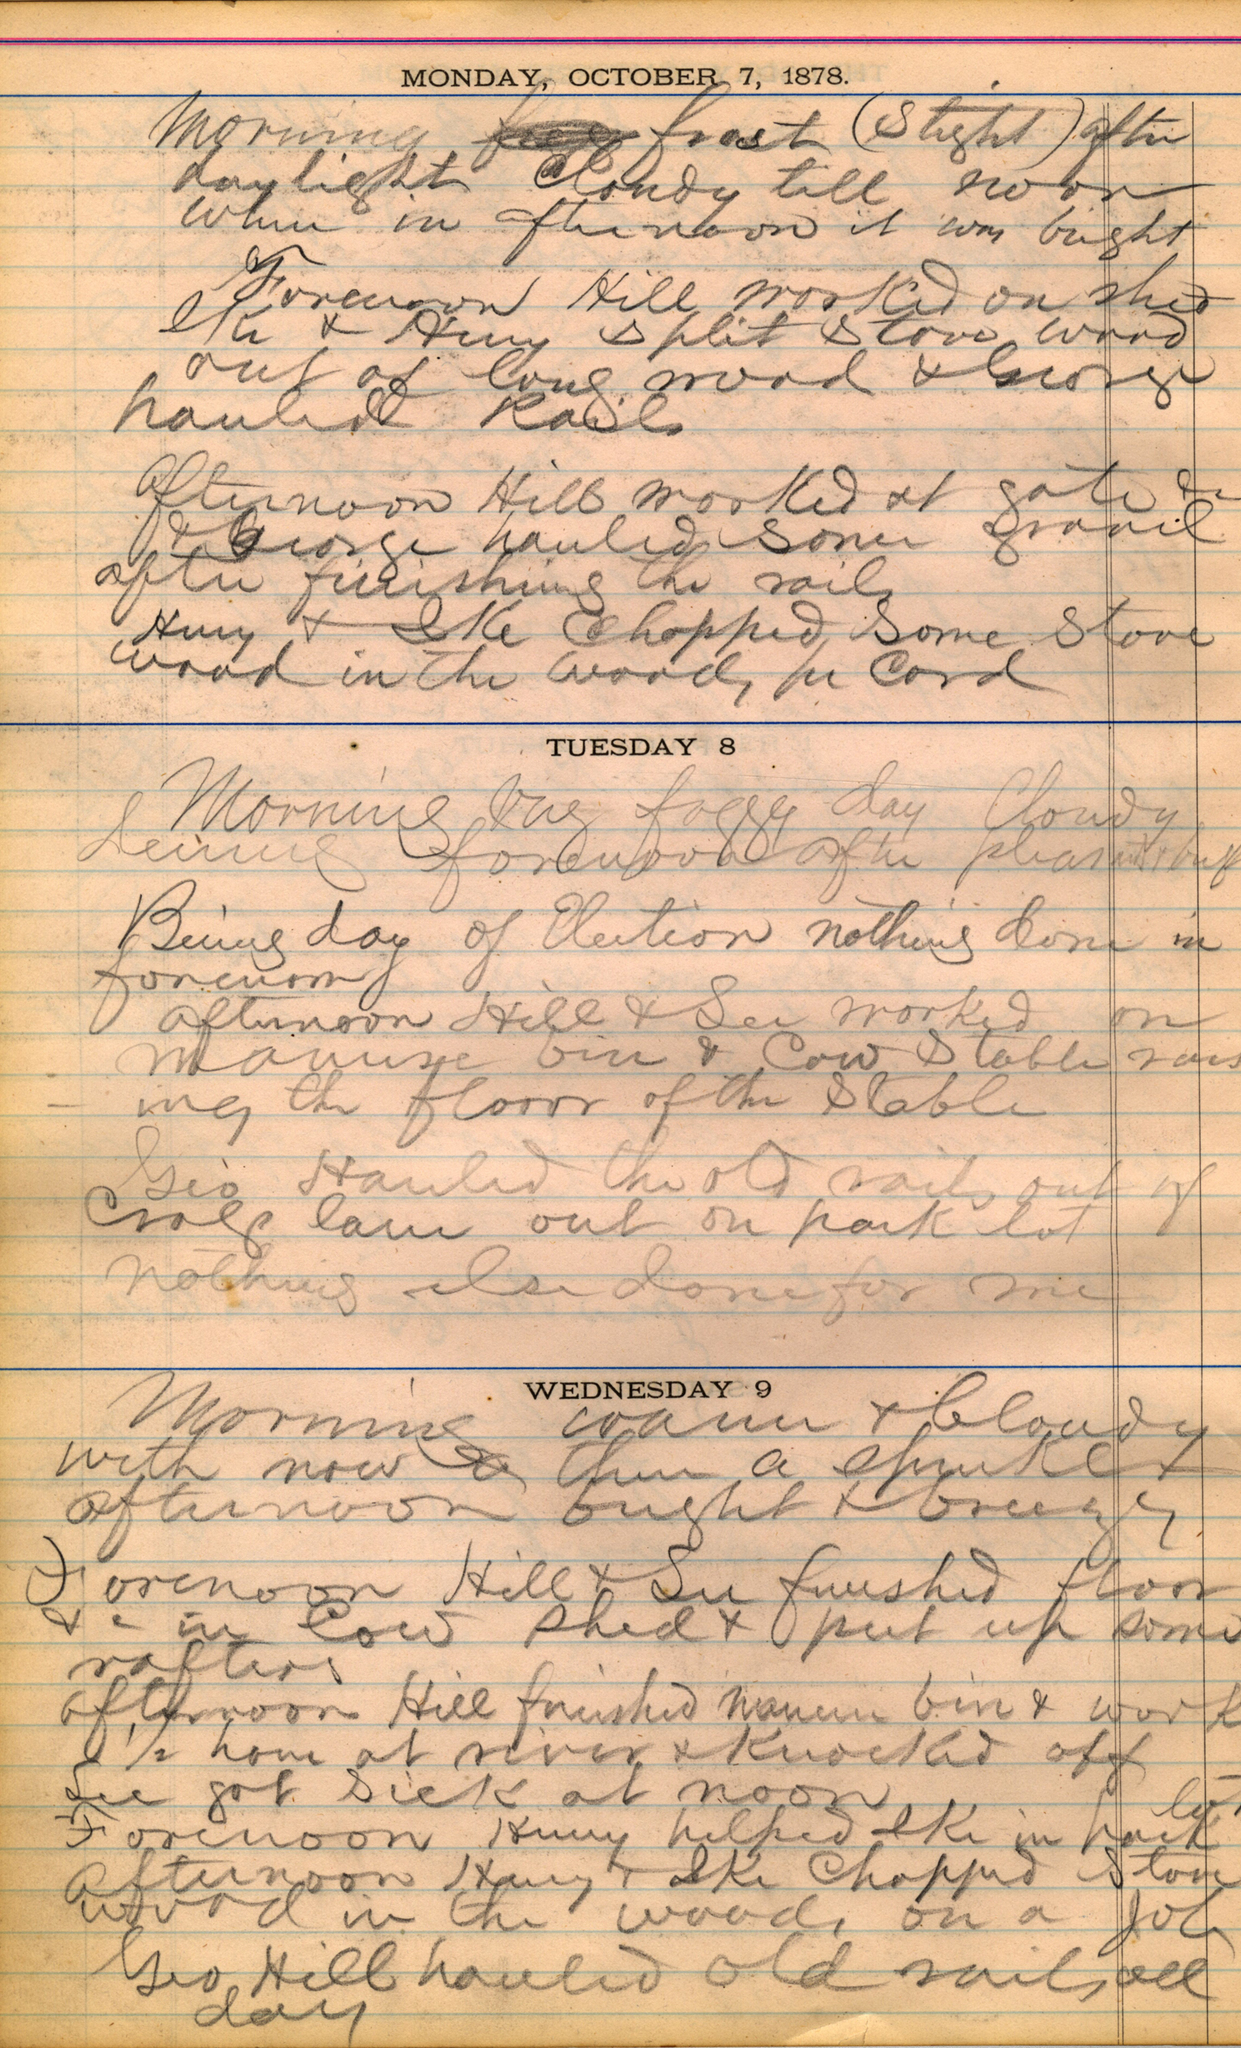 MONDAY, OCTOBER 7, 1878.
Morning frost (Slight) after
daylight Cloudy till noon
when in afternoon it was bright
Forenoon Hill worked on shed
Ike & Henry Split Stove wood
out of long wood & George
hauled Rails
Afternoon Hill worked at gate &c
& George hauled Some gravil
after finishing the rails
Henry & Ike Chopped Some Stove
wood in the woods per Cord
TUESDAY 8
Morning very foggy day Cloudy
during forenoon after pleasant &
Being day of Election nothing done in
forenoon
afternoon Hill & See worked on
Manure bin & Cow Stable rais
ing the floor of the Stable
Geo Hauled the old rails out of
lane out on park lot
Nothing else done for me
WEDNESDAY 9
Morning warm & Cloudy
with now & then a sprinkle &
afternoon bright & breezy
Forenoon Hill & See finished floor
&c in Cow Shed & put up some
rafters
afternoon Hill finished manure bin & work
1/2 hour at river & Knocked off
See got Sick at noon
Forenoon Henry helped Ike in park lot
Afternoon Henry & Ike Chopped Stove
wood in the woods on a Job
Geo Hill hauled old rails all
day